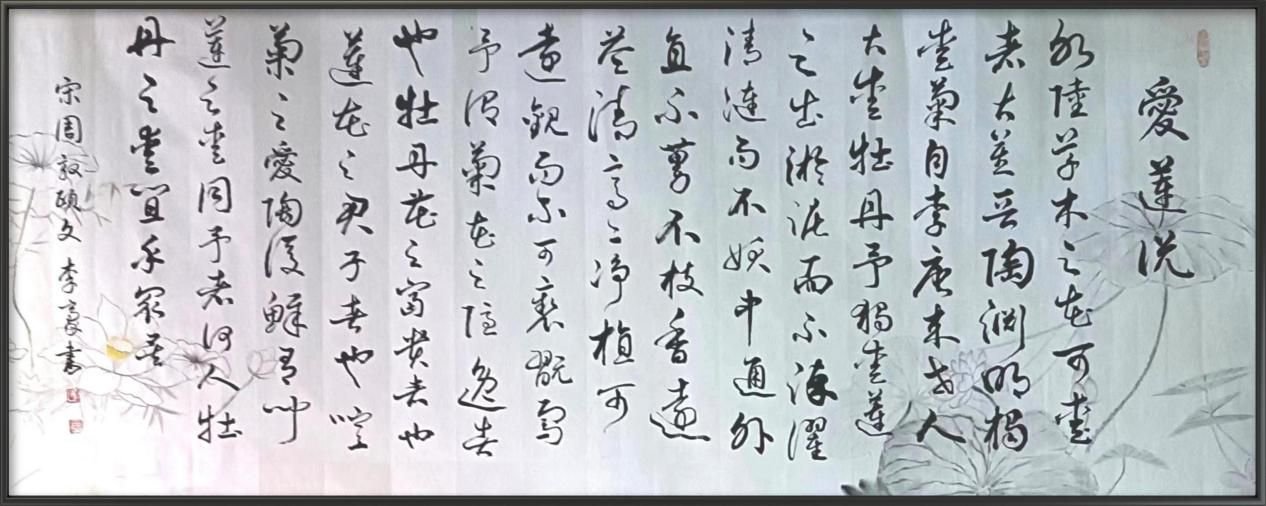 愛蓮说
水陸草木之花可愛
者大甚晋陶渊明獨
愛菊自李唐来世人
大愛牡丹予獨愛蓮
之出淤泥而不染濯
清漣而不妖中通外
直不蔓不枝香遠
益清亭亭净植可
遠觀而不可褻翫焉
予谓菊花之隐逸者
也牡丹花之富貴者也
蓮花之君子者也噫
菊之愛陶後鮮有聞
蓮之愛同予者何人牡
丹之愛宜乎眾矣
宋周敦颐文 李豪書